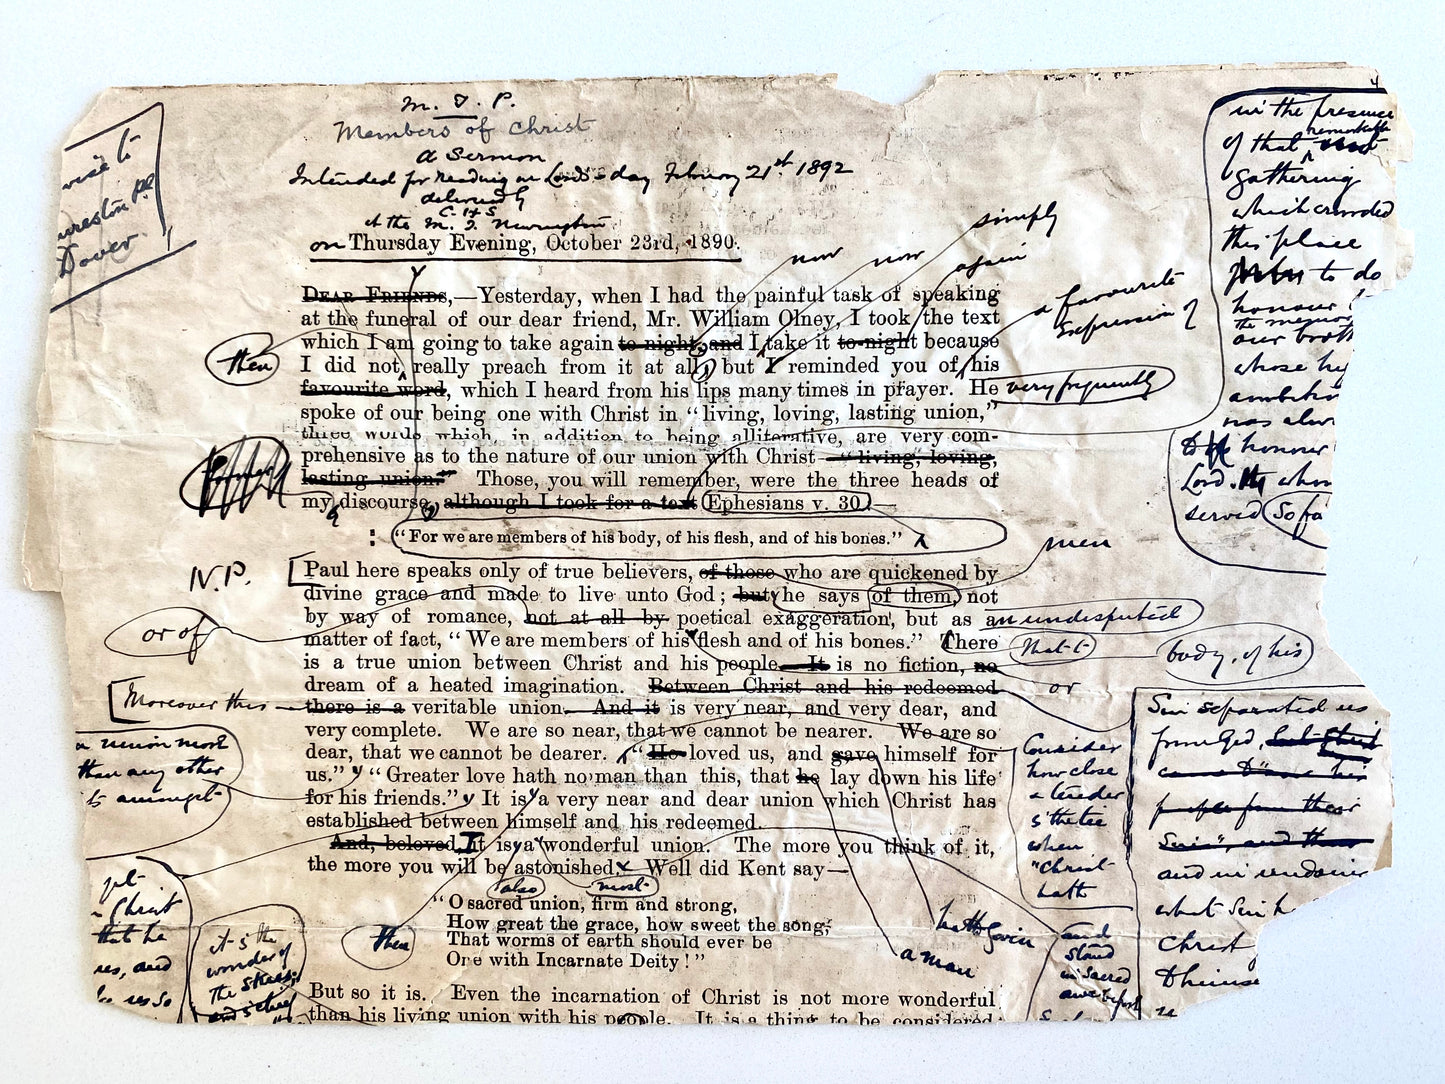 M. T. P.
Members of Christ
a Sermon
Intended for Reading on Lord's-day February 21st 1892
delivered by
C. H. S
at the M. T. Newington
on Thursday Evening, October 23rd, 1890.
Dover
simply
now now again
DEAR FRIENDS,—Yesterday, when I had the painful task of speaking
at the funeral of our dear friend, Mr. William Olney, I took the text
which I am going to take again to-night; and I take it to-night because
I did not really preach from it at all, but I reminded you of his
favourite word, which I heard from his lips many times in prayer. He
spoke of our being one with Christ in "living, loving, lasting union,"
three words which, in addition to being alliterative, are very com-
prehensive as to the nature of our union with Christ—"living, loving,
lasting union." Those, you will remember, were the three heads of
my discourse, although I took for a text Ephesians v. 30.—
then
a favourite
expression of
very frequently
: "For we are members of his body, of his flesh, and of his bones."
men
N.P. [Paul here speaks only of true believers, of those who are quickened by
divine grace and made to live unto God; but he says of them, not
by way of romance, not at all by poetical exaggeration, but as an undisputed
matter of fact, "We are members of his flesh and of his bones." There
is a true union between Christ and his people. It is no fiction, no
dream of a heated imagination. Between Christ and his redeemed
there is a veritable union. And it is very near, and very dear, and
very complete. We are so near, that we cannot be nearer. We are so
dear, that we cannot be dearer. "He loved us, and gave himself for
us." "Greater love hath no man than this, that he lay down his life
for his friends." It is a very near and dear union which Christ has
established between himself and his redeemed.
And, beloved, It is a wonderful union. The more you think of it,
the more you will be astonished. Well did Kent say—
also most
"O sacred union, firm and strong,
How great the grace, how sweet the song,
That worms of earth should ever be
One with Incarnate Deity!"
But so it is. Even the incarnation of Christ is not more wonderful
than his living union with his people. It is a thing to be considered
or of
[Moreover this
a union most
than any other
amongst
Christ
that he
and
so
it is the
wonder of
the skies;
then
that
body, of his
or
Consider
how close
a tender
when
"Christ
hath
hath given
a man
and
stand
in sacred
awe before
4
in the presence
of that remarkable
gathering
which crowded
this place
to do
honour
the memory
our
whose
was
honour
Lord. whom
served So
Sin separated us
from God,
and in
what Sin
Christ